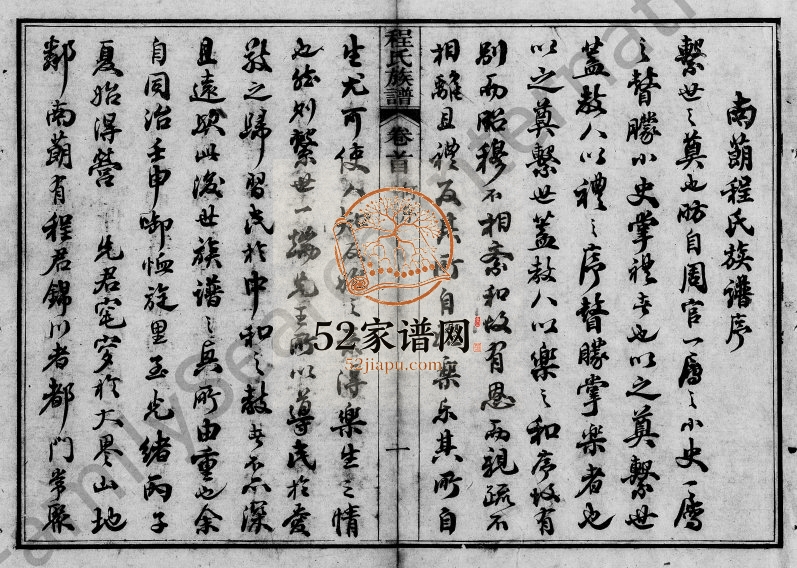 南蓢程氏族譜序
繫世之奠也昉自周官一屬之小史一屬
之瞽矇小史掌禮者也以之奠繫世
蓋教人以禮之序瞽矇掌樂者也
以之奠繫世蓋教人以樂之和序故有
別而昭穆不相紊和故有恩而親疏不
相離且禮反其所自樂樂其所自
程氏族譜
卷首
一
生尤可使人
之
得樂生之情
也然則繫世一端先王所以導民於愛
敬之歸習民於中和之教者不亦深
且遠歟此後世族譜之與所由重也余
自同治壬申啣恤旋里至光緒丙子
夏始得營
先君窀穸於大墨山地
鄰南蓢有程君錦川者都門掌聚
52家谱网
52jiapu.com
FamilySearch International